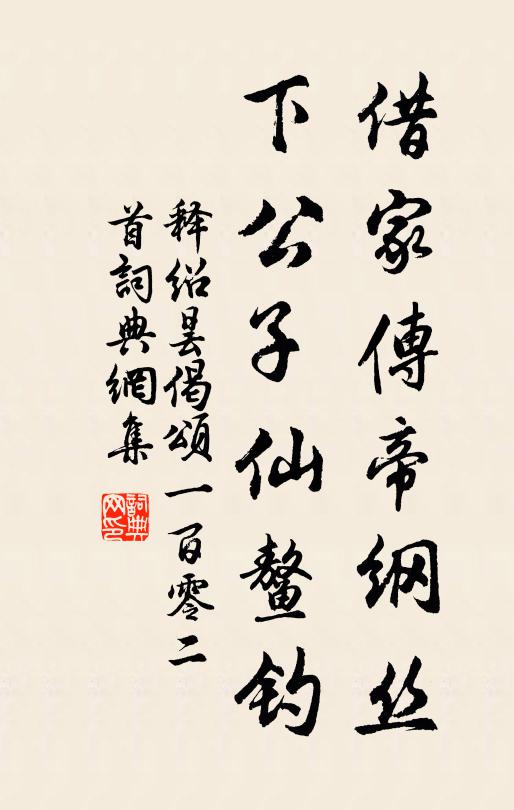 借家傳帝網丝
下公子仙鳌钓
释绍昙偈頌一百零二
首詞典網集
詞典网印